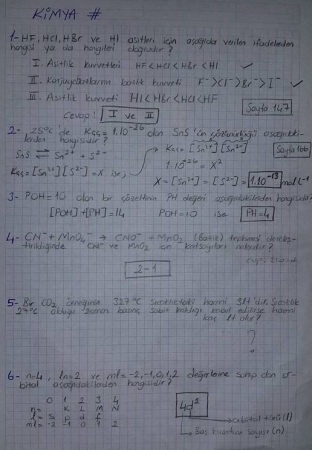 KİMYA #
1- HF, HCl, HBr ve HI asitleri için aşağıda verilen ifadelerden
hangisi ya da hangileri doğrudur?
I. Asitlik kuvvetleri HF<HCl<HBr<HI
II. Konjuge bazların bazlık kuvveti F⁻>Cl⁻>Br⁻>I⁻
III. Asitlik kuvveti HI<HBr<HCl<HF
cevap: I ve II
Sayfa 147
2- 25°C de Kçç=1.10⁻²⁶ olan SnS'ün çözünürlüğü aşağıdaki-
lerden hangisidir?
Kçç=[Sn²⁺][S²⁻]
Sayfa 166
SnS ⇌ Sn²⁺ + S²⁻
1.10⁻²⁶ = X²
Kçç=[Sn²⁺][S²⁻]=X ise,
X=[Sn²⁺]=[S²⁻]=1.10⁻¹³ mol L⁻¹
3- POH=10 olan bir çözeltinin PH değeri aşağıdakilerden hangisidir?
[POH]+[PH]=14
POH=10 ise PH=4
4- CN⁻+MnO₄⁻ → CNO⁻+MnO₂ (bazik) tepkimesi denkleş-
tirildiğinde CN⁻ ve MnO₂ nin katsayıları nelerdir?
2-1
5- Bir CO₂ örneğinin 327°C sıcaklıktaki hacmi 3Lt'dir. Sıcaklık
27°C olduğu zaman basınç sabit kaldığı kabul edilirse hacmi
kaç Lt olur?
?
6- n=4, l=2 ve ml=-2,-1,0,1,2 değerlerine sahip olan or-
bital aşağıdakilerden hangisidir?
0 1 2 3 4
n= K L M N
l= s p d f
ml= -2 -1 0 1 2
4d²
orbital türü (l)
Baş kuantum sayısı (n)